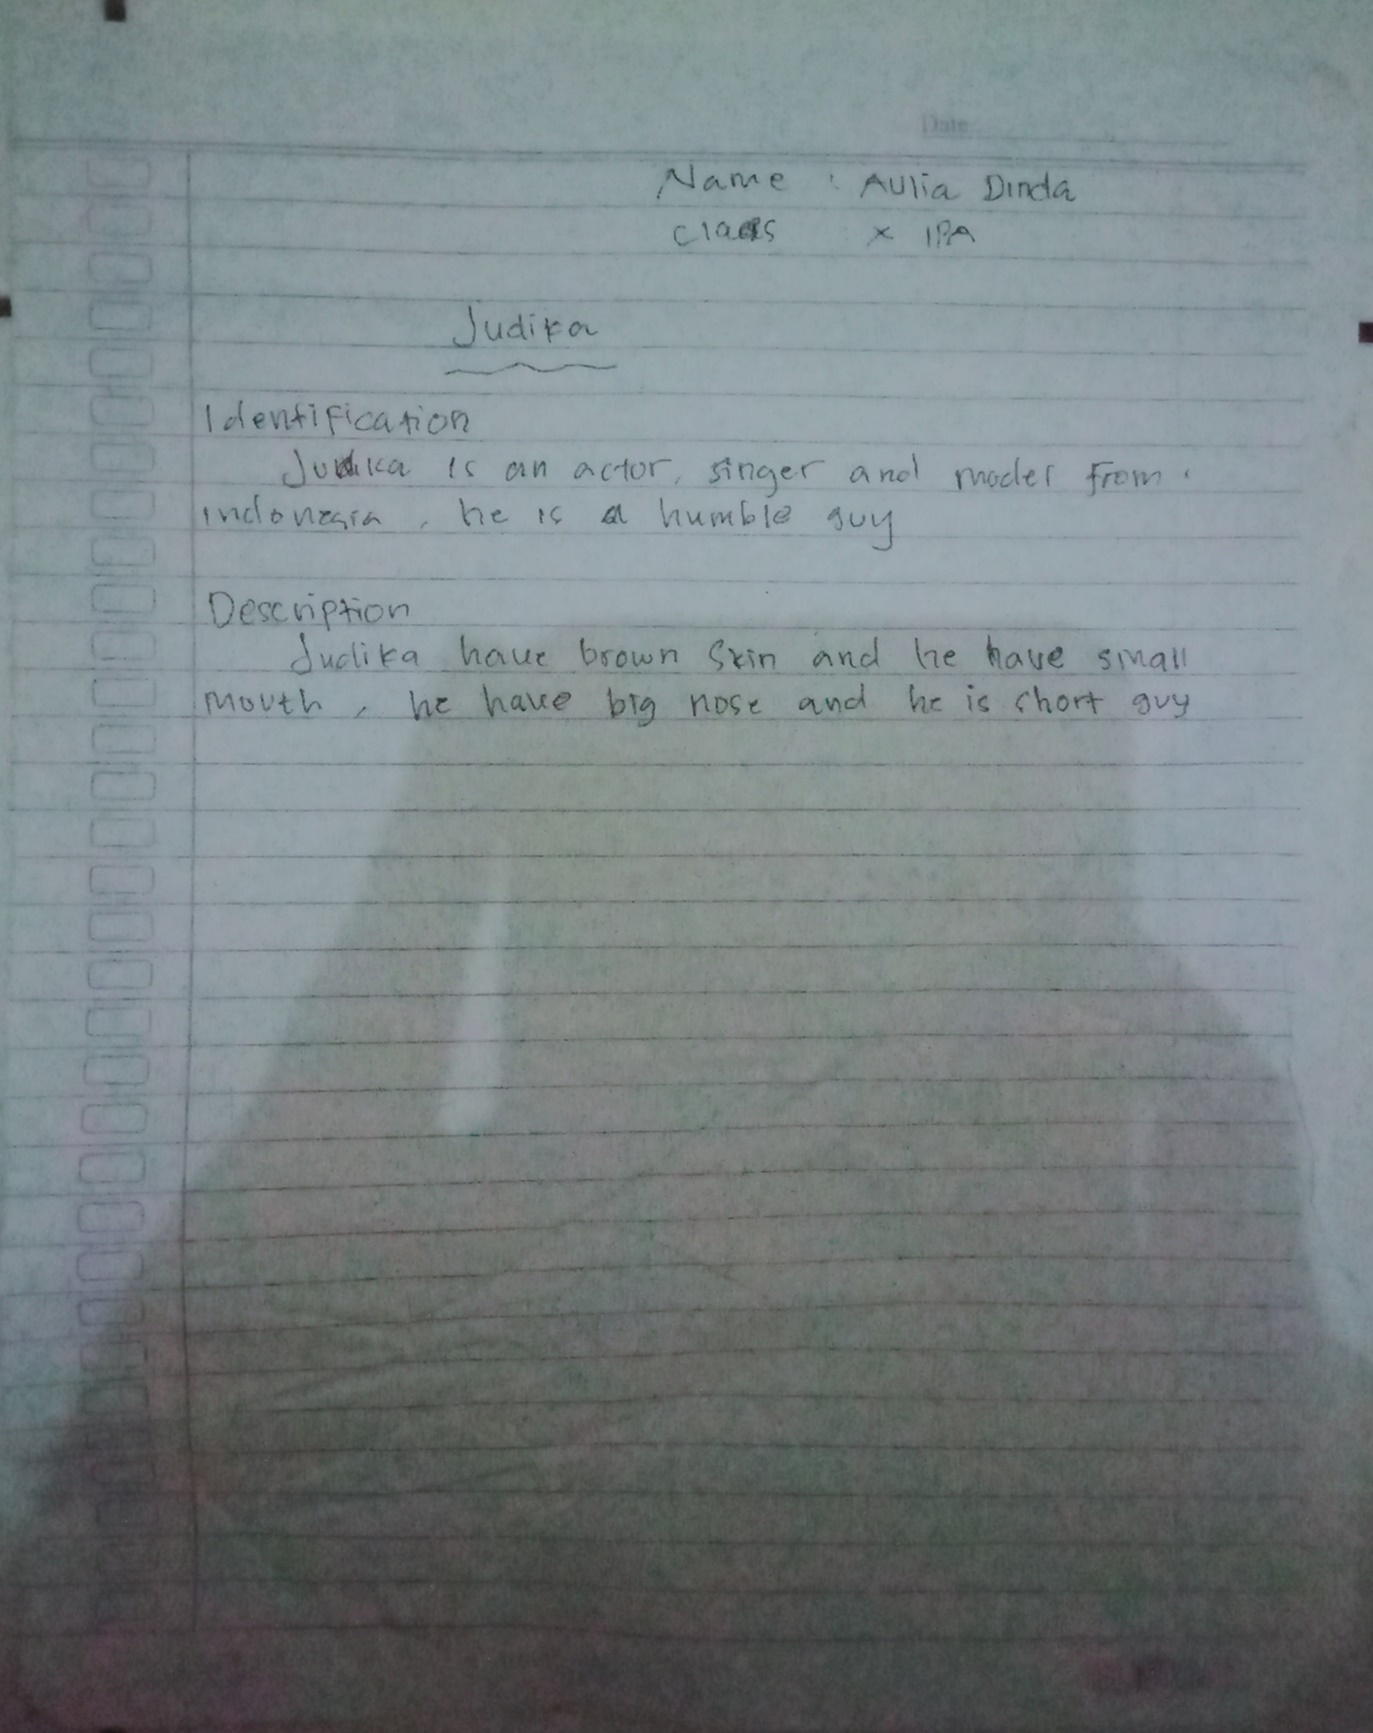 Date
Name : Aulia Dinda
Class x IPA
Judika
Identification
Judika is an actor, singer and model from
indonesia, he is a humble guy
Description
Judika have brown skin and he have small
mouth, he have big nose and he is short guy